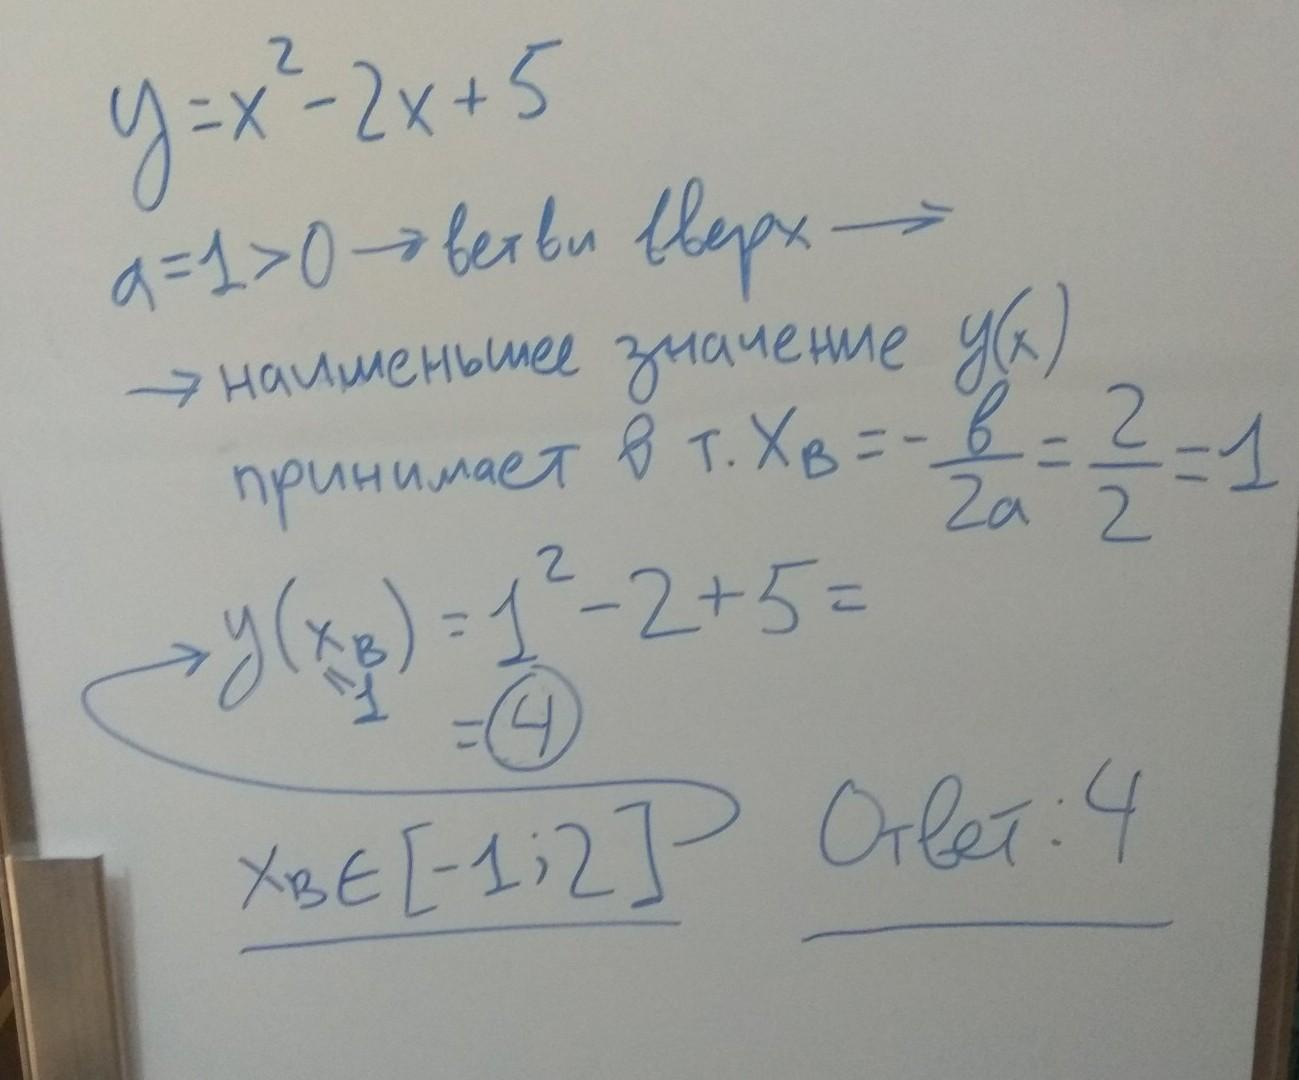 y = x² - 2x + 5
a = 1 > 0 → ветви вверх →
→ наименьшее значение y(x)
принимает в т. xв = - в/2a = 2/2 = 1
y(xв) = 1² - 2 + 5 =
=1
= 4
xв ∈ [-1; 2]
Ответ: 4